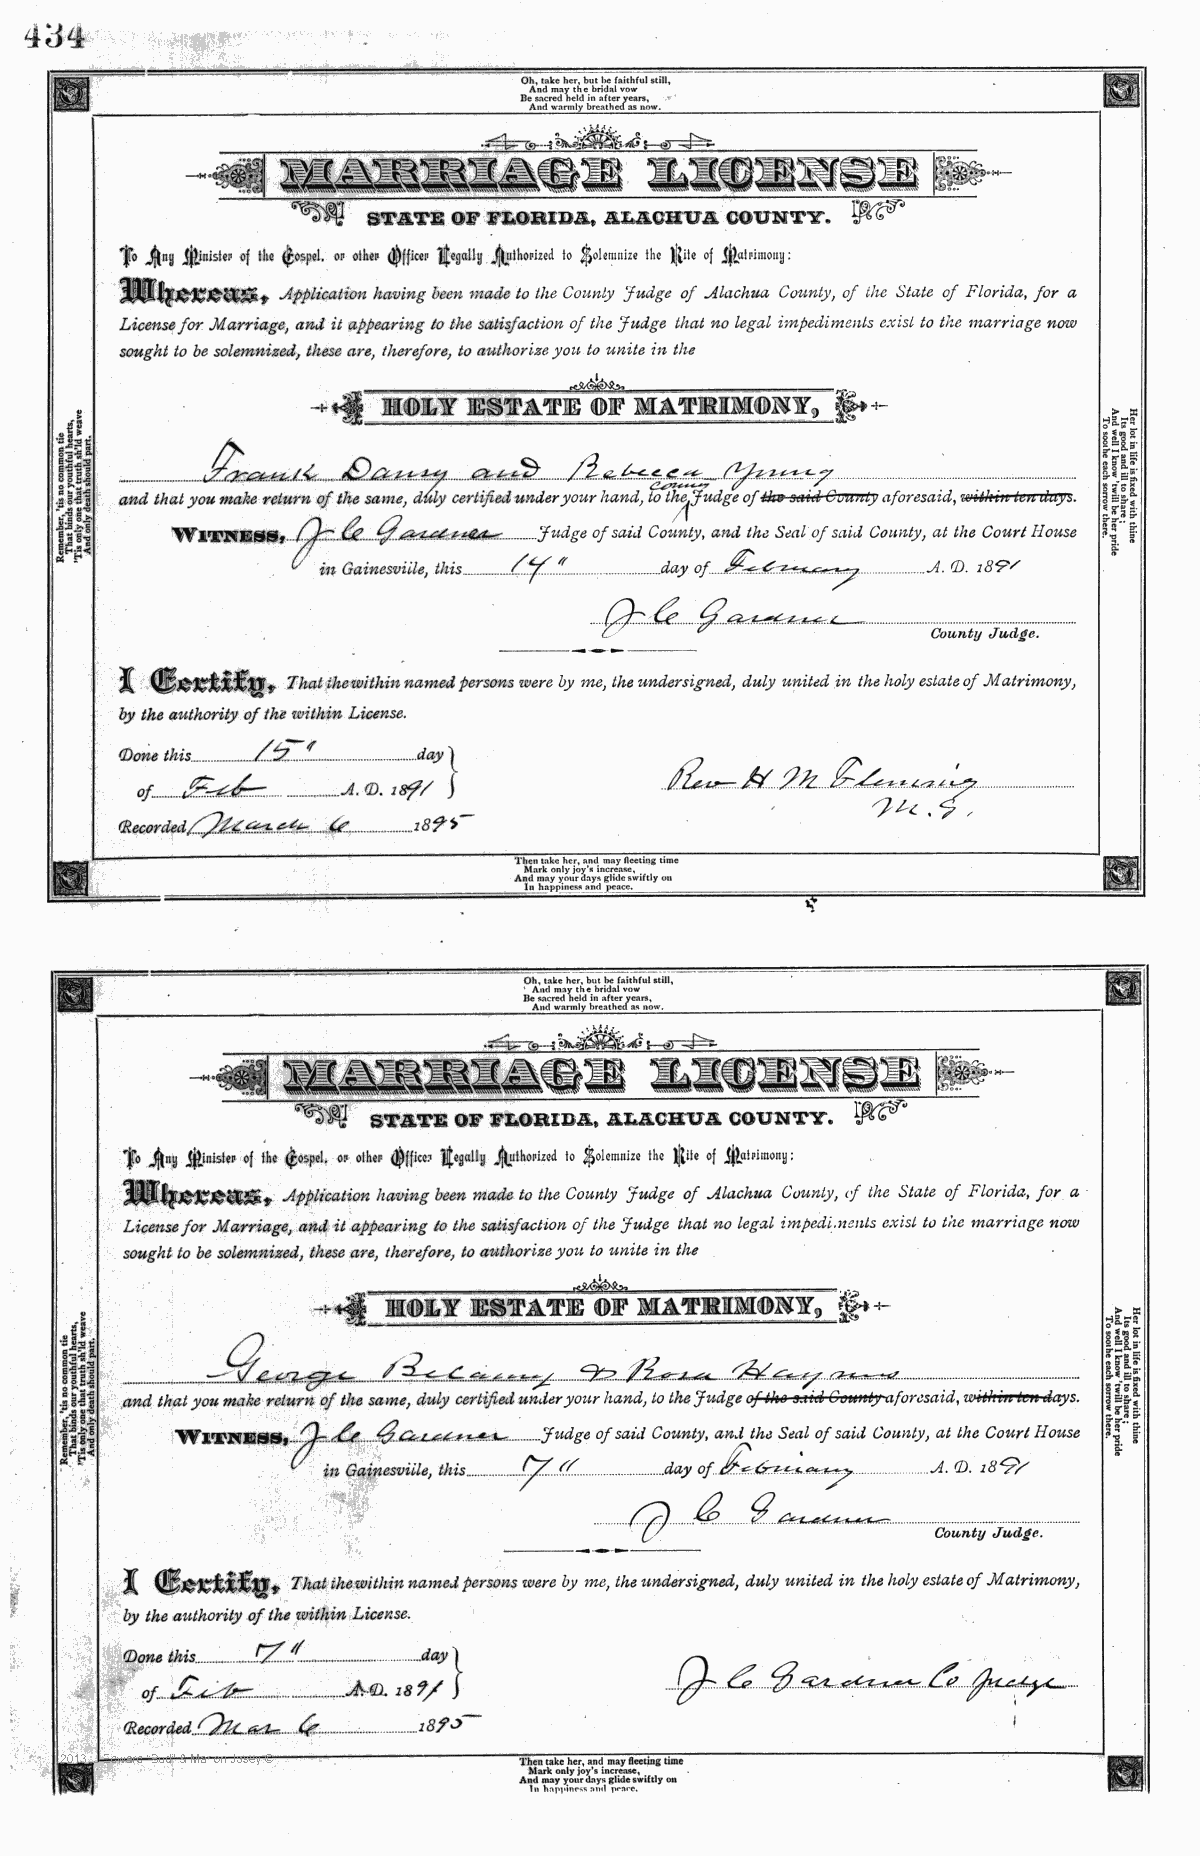 434
Oh, take her, but be faithful still,
And may the bridal vow
Be sacred held in after years,
And warmly breathed as now.
MARRIAGE LICENSE
STATE OF FLORIDA, ALACHUA COUNTY.
To Any Minister of the Gospel, or other Officer Legally Authorized to Solemnize the Rite of Matrimony:
Whereas, Application having been made to the County Judge of Alachua County, of the State of Florida, for a
License for Marriage, and it appearing to the satisfaction of the Judge that no legal impediments exist to the marriage now
sought to be solemnized, these are, therefore, to authorize you to unite in the
HOLY ESTATE OF MATRIMONY,
Remember, 'tis no common tie
That binds our youthful hearts,
'Tis only one that truth sh'ld weave
And only death should part.
Her lot in life is fixed with thine
Its good and ill to share;
And well I know 'twill be her pride
To soothe each sorrow there.
Frank Dansy and Rebecca Young
county
and that you make return of the same, duly certified under your hand, to the Judge of the said County aforesaid, within ten days.
WITNESS, J C Gardner Judge of said County, and the Seal of said County, at the Court House
in Gainesville, this 14" day of February A. D. 1891
J C Gardner
County Judge.
I Certify, That the within named persons were by me, the undersigned, duly united in the holy estate of Matrimony,
by the authority of the within License.
Done this 15" day
of Feb A. D. 1891
Rev H M Fleming
M. G.
Recorded March 6 1895
Then take her, and may fleeting time
Mark only joy's increase,
And may your days glide swiftly on
In happiness and peace.
Oh, take her, but be faithful still,
And may the bridal vow
Be sacred held in after years,
And warmly breathed as now.
MARRIAGE LICENSE
STATE OF FLORIDA, ALACHUA COUNTY.
To Any Minister of the Gospel, or other Officer Legally Authorized to Solemnize the Rite of Matrimony:
Whereas, Application having been made to the County Judge of Alachua County, of the State of Florida, for a
License for Marriage, and it appearing to the satisfaction of the Judge that no legal impediments exist to the marriage now
sought to be solemnized, these are, therefore, to authorize you to unite in the
HOLY ESTATE OF MATRIMONY,
Remember, 'tis no common tie
That binds our youthful hearts,
'Tis only one that truth sh'ld weave
And only death should part.
Her lot in life is fixed with thine
Its good and ill to share;
And well I know 'twill be her pride
To soothe each sorrow there.
George Belamy & Rosa Haynes
and that you make return of the same, duly certified under your hand, to the Judge of the said County aforesaid, within ten days.
WITNESS, J C Gardner Judge of said County, and the Seal of said County, at the Court House
in Gainesville, this 7" day of February A. D. 1891
J C Gardner
County Judge.
I Certify, That the within named persons were by me, the undersigned, duly united in the holy estate of Matrimony,
by the authority of the within License.
Done this 7" day
of Feb A. D. 1891
J C Gardner Co Judge
Recorded Mar 6 1895
Then take her, and may fleeting time
Mark only joy's increase,
And may your days glide swiftly on
In happiness and peace.